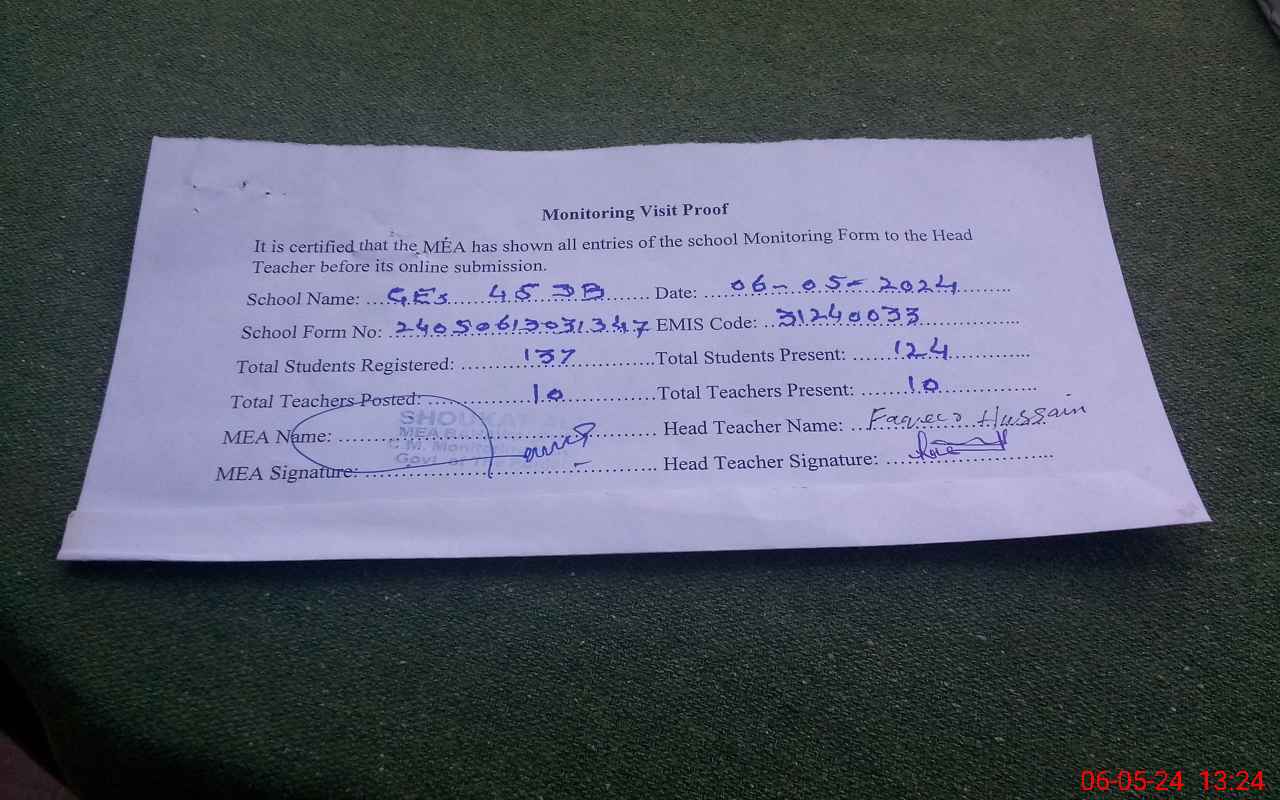 Monitoring Visit Proof
It is certified that the MEA has shown all entries of the school Monitoring Form to the Head
Teacher before its online submission.
School Name: ...GES 45 DB....... Date: ...06-05-2024.......
School Form No: .24050613031347 EMIS Code: ..31240033..............
Total Students Registered: ..........137.............Total Students Present: ......124............
Total Teachers Posted:................10................Total Teachers Present: .......10..............
MEA Name: ................................................ Head Teacher Name: ... Hussain
MEA Signature: ............................................ Head Teacher Signature: ........................
SHOUKAT
MEA
Govt. of
06-05-24 13:24